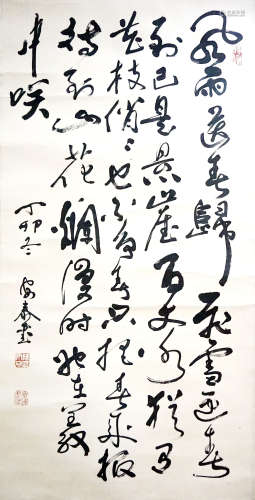 風雨送春歸飛雪迎春
到已是悬崖百丈冰猶有
花枝俏〻也不争春只把春来报
待到山花爛漫时她在叢
中咲
丁卯冬